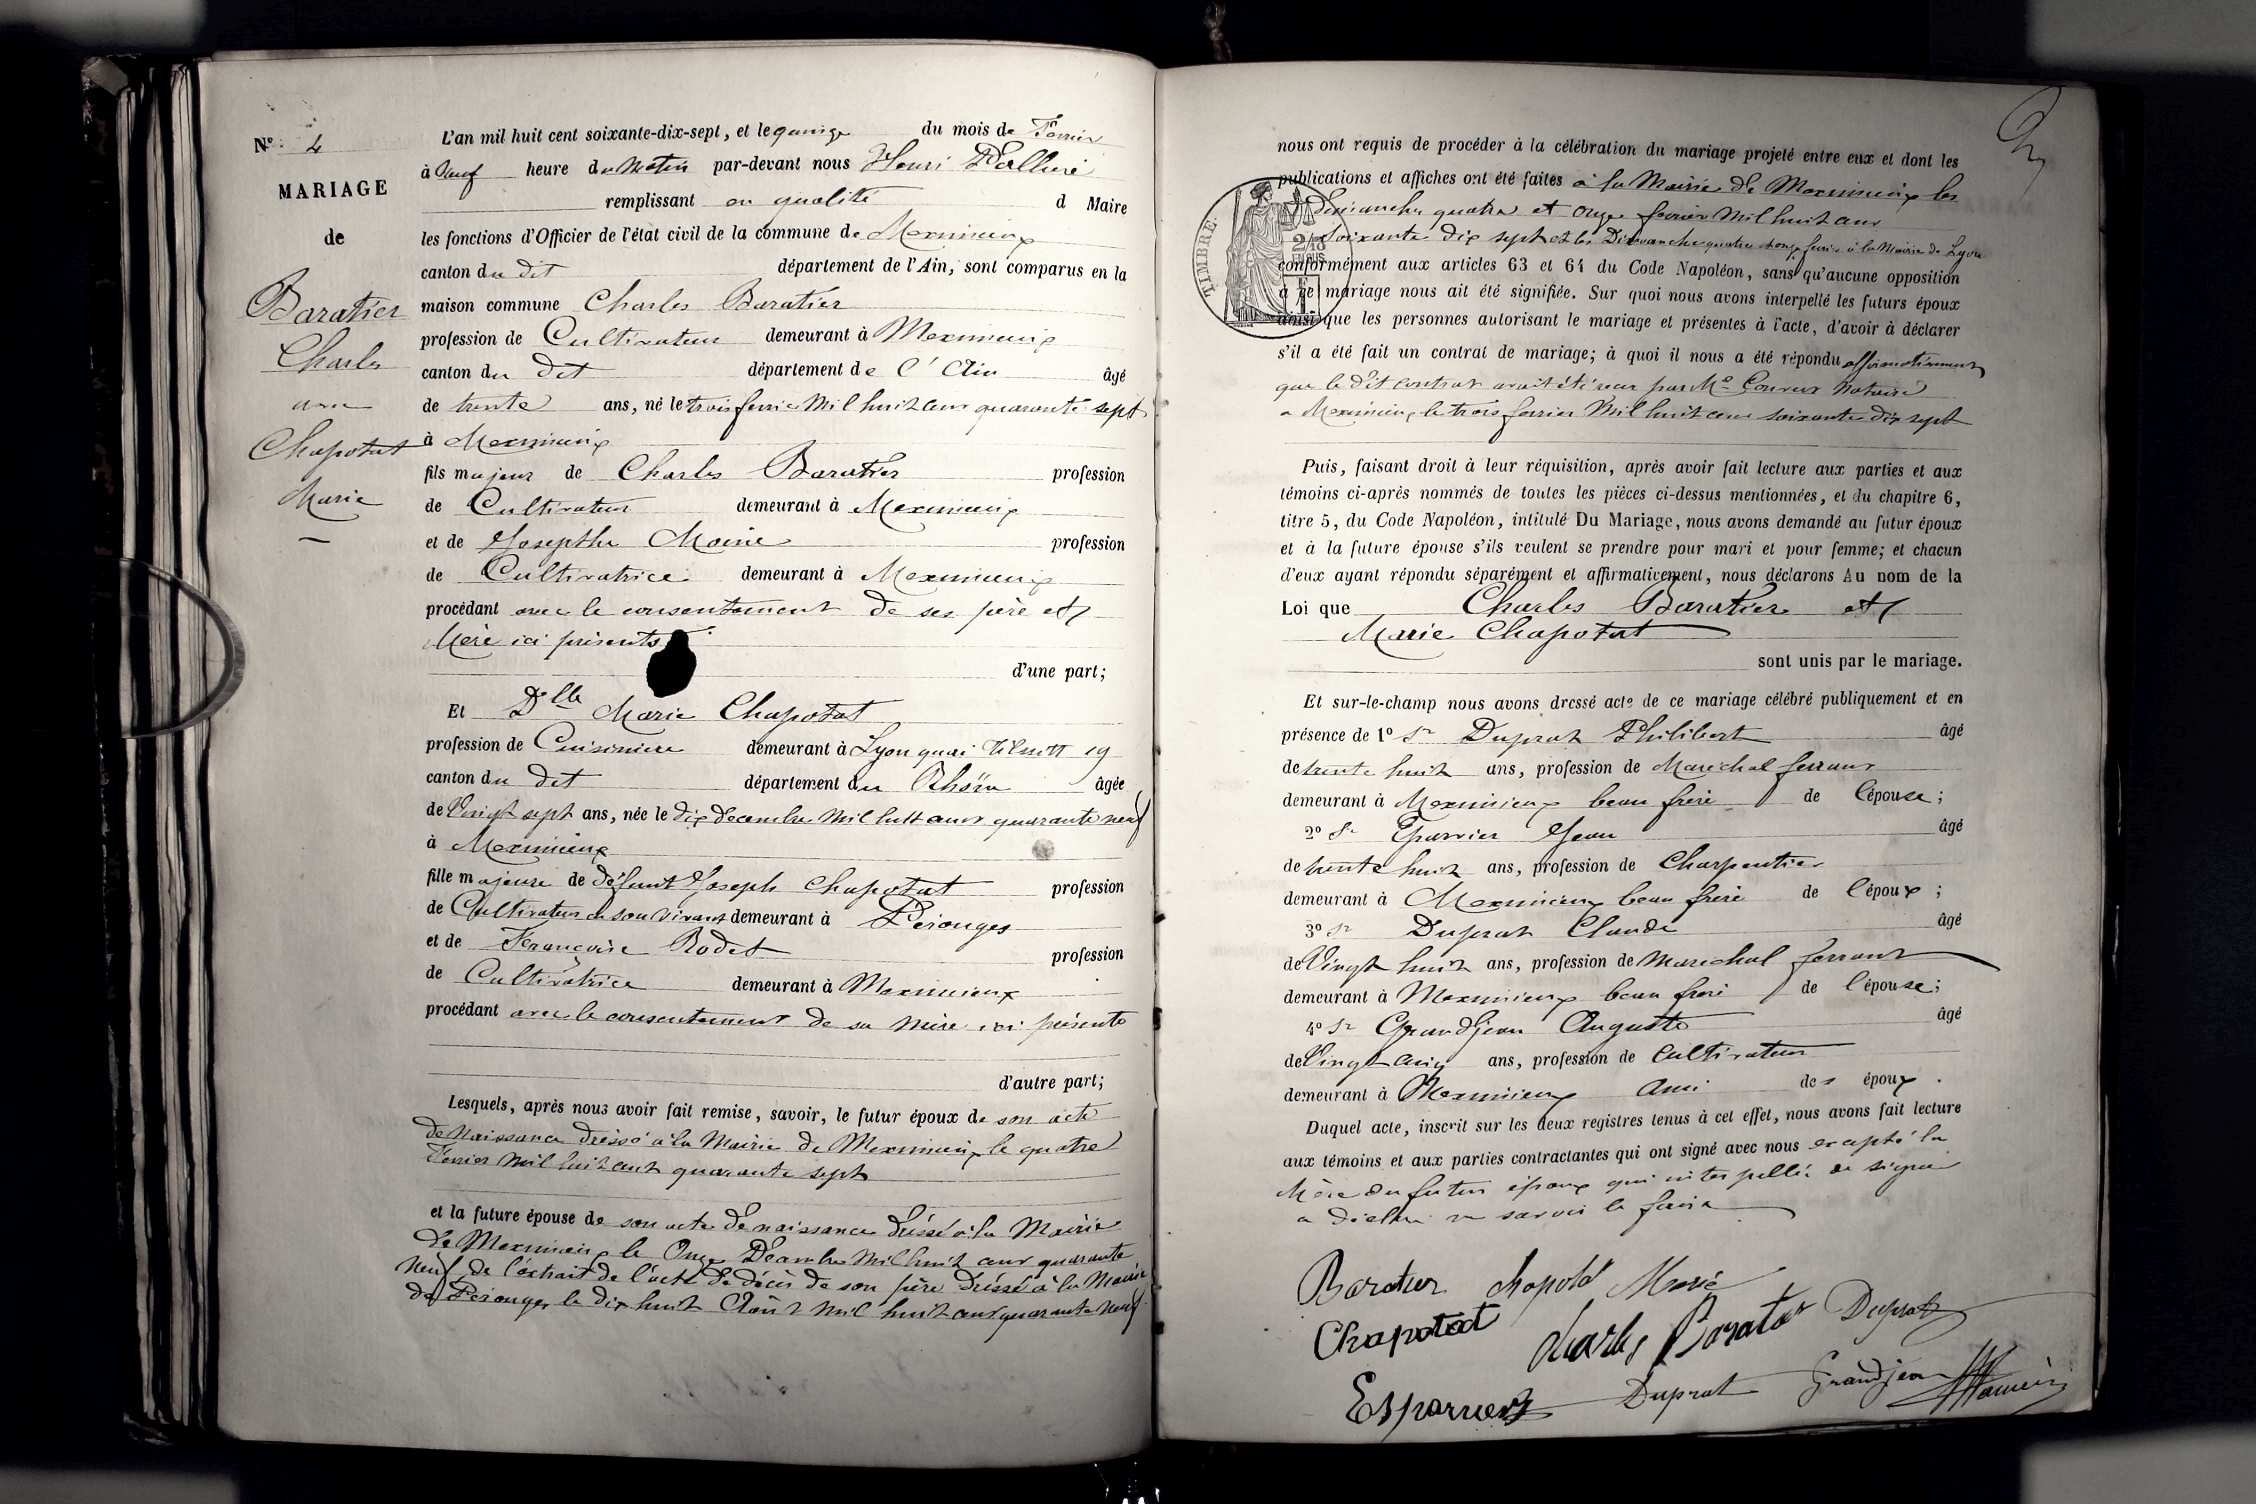 N° 4
MARIAGE
de
Baratier
Charles
avec
Chapotat
Marie
L'an mil huit cent soixante-dix-sept, et le quinze du mois de Février
à Neuf heure du Matin par-devant nous Henri
remplissant en qualité d Maire
les fonctions d'Officier de l'état civil de la commune de Meximieux
canton du dit département de l'Ain, sont comparus en la
maison commune Charles Baratier
profession de Cultivateur demeurant à Meximieux
canton du dit département de l'Ain âgé
de trente ans, né le trois fevrier Mil huit cent quarante sept
à Meximieux
fils majeur de Charles Baratier profession
de Cultivateur demeurant à Meximieux
et de Josephte Moine profession
de Cultivatrice demeurant à Meximieux
procédant avec le consentement de ses père et
Mère ici présents
d'une part;
Et Dlle Marie Chapotat
profession de Cuisinière demeurant à Lyon quai Tilsitt 19
canton du dit département du Rhône âgée
de Vingt sept ans, née le dix decembre Mil huit cent quarante neuf
à Meximieux
fille majeure de défunt Joseph Chapotat profession
de Cultivateur de son vivant demeurant à Pérouges
et de Françoise Rodet profession
de Cultivatrice demeurant à Meximieux
procédant avec le consentement de sa Mère ici présente
d'autre part;
Lesquels, après nous avoir fait remise, savoir, le futur époux de son acte
de Naissance dressé à la Mairie de Meximieux le quatre
Fevrier Mil huit cent quarante sept
et la future épouse de son acte de naissance dressé à la Mairie
de Meximieux le Onze Décembre Mil huit cent quarante
Neuf, de l'extrait de l'acte de décès de son père dressé à la Mairie
de Pérouges le dix huit Août Mil huit cent quarante Neuf
nous ont requis de procéder à la célébration du mariage projeté entre eux et dont les
publications et affiches ont été faites à la Mairie de Meximieux les
Dimanches quatre et onze fevrier Mil huit cent
Soixante dix sept et les Dimanche quatre et onze fevrier à la Mairie de Lyon
TIMBRE
conformément aux articles 63 et 64 du Code Napoléon, sans qu'aucune opposition
à ce mariage nous ait été signifiée. Sur quoi nous avons interpellé les futurs époux
ainsi que les personnes autorisant le mariage et présentes à l'acte, d'avoir à déclarer
s'il a été fait un contrat de mariage; à quoi il nous a été répondu affirmativement
que le dit contrat avait été reçu par Me Notaire
à Meximieux le trois fevrier Mil huit cent soixante dix sept
Puis, faisant droit à leur réquisition, après avoir fait lecture aux parties et aux
témoins ci-après nommés de toutes les pièces ci-dessus mentionnées, et du chapitre 6,
titre 5, du Code Napoléon, intitulé Du Mariage, nous avons demandé au futur époux
et à la future épouse s'ils veulent se prendre pour mari et pour femme; et chacun
d'eux ayant répondu séparément et affirmativement, nous déclarons Au nom de la
Loi que Charles Baratier et
Marie Chapotat
sont unis par le mariage.
Et sur-le-champ nous avons dressé acte de ce mariage célébré publiquement et en
présence de 1° Sr Duprat Philibert âgé
de trente huit ans, profession de Maréchal ferrant
demeurant à Meximieux beau frère de l'épouse;
2° Sr Jean âgé
de trente huit ans, profession de Charpentier
demeurant à Meximieux beau frère de l'époux;
3° Sr Duprat Claude âgé
de Vingt huit ans, profession de Maréchal ferrant
demeurant à Meximieux beau frère de l'épouse;
4° Sr Grandjean Auguste âgé
de Vingt cinq ans, profession de Cultivateur
demeurant à Meximieux Ami des époux.
Duquel acte, inscrit sur les deux registres tenus à cet effet, nous avons fait lecture
aux témoins et aux parties contractantes qui ont signé avec nous excepté la
Mère du futur époux qui interpellée de signer
a déclaré ne savoir le faire
Baratier chapotat Marie
Chapotat Charles Baratier Duprat
Esparrier Duprat Grandjean